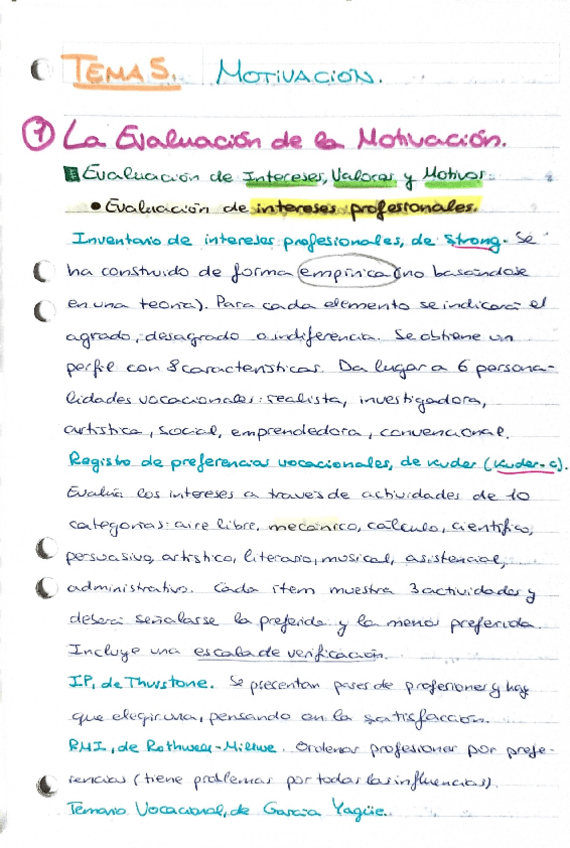 TEMA 5. MOTIVACIÓN.
1 La Evaluación de la Motivación.
Evaluación de Intereses, Valores y Motivos.
• Evaluación de intereses profesionales.
Inventario de intereses profesionales, de Strong. Se
ha construido de forma empírica (no basándose
en una teoría). Para cada elemento se indicará el
agrado, desagrado o indiferencia. Se obtiene un
perfil con 8 características. Da lugar a 6 persona-
lidades vocacionales: realista, investigadora,
artística, social, emprendedora, convencional.
Registro de preferencias vocacionales, de Kuder (Kuder-c).
Evalúa los intereses a través de actividades de 10
categorías: aire libre, mecánico, cálculo, científico,
persuasivo, artístico, literario, musical, asistencial,
administrativo. Cada ítem muestra 3 actividades y
deberá señalarse la preferida y la menos preferida.
Incluye una escala de verificación.
IP, de Thurstone. Se presentan pares de profesiones y hay
que elegir una, pensando en la satisfacción.
RMI, de Rothwell-Miller. Ordenar profesiones por prefe-
rencias (tiene problemas por todas las influencias).
Temario Vocacional, de García Yagüe.